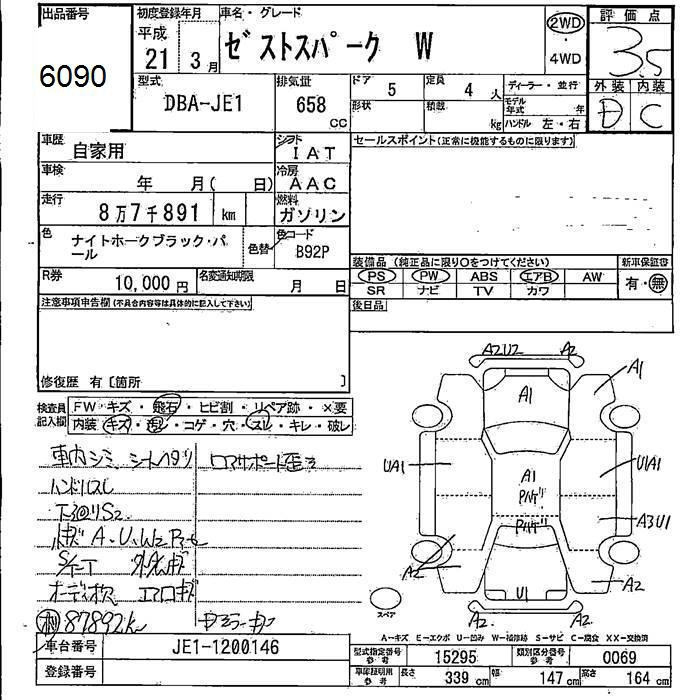 出品番号
6090
初度登録年月
平成
21 3月
車名・グレード
ゼストスパーク W
2WD
4WD
評価点
3.5
外装 内装
D C
型式
DBA-JE1
排気量
658
CC
ドア 5
定員 4 人
形状
積載
kg
ディーラー・並行
モデル年式 年
ハンドル 左・右
車歴
自家用
シフト
IAT
車検
年 月( 日)
冷房
AAC
走行
8万7千891 km
燃料
ガソリン
色
ナイトホークブラック・パール
色替
色コード
B92P
R券
10,000円
名変通知期限
月 日
セールスポイント(正常に機能するものに限ります)
装備品 (純正品に限り○をつけてください)
新車保証書
PS PW ABS エアB AW
SR ナビ TV カワ
有・無
後日品
注意事項申告欄(不具合内容等は具体的に記入して下さい)
修復歴 有〔箇所 〕
検査員記入欄
FW キズ・飛石・ヒビ割・リペア跡・×要
内装 キズ・汚レ・コゲ・穴・スレ・キレ・破レ
車内シミ シートヘタリ
コアサポート歪み
ハンドルスレ
下廻りS2
A・U・W2
87892km
A2U2 A2
A1
A1
UA1
A1
U1A1
A3U1
A2
A2
U1
A2 A2
スペア
A―キズ E―エクボ U―凹み W―補修跡 S―サビ C―腐食 XX―交換済
車台番号
JE1-1200146
登録番号
型式指定番号
参考
15295
類別区分番号
参考
0069
車庫証明用
参考
長さ 339 cm
幅 147 cm
高さ 164 cm